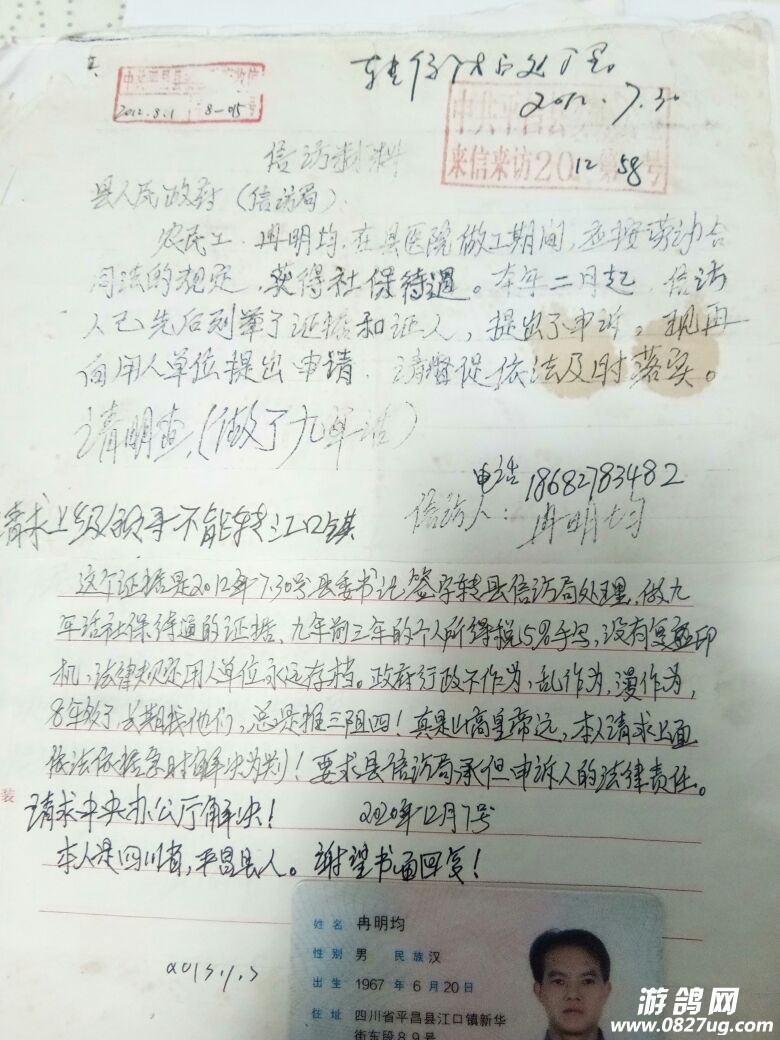 转信访局处理。
2012.7.30
中共平昌县
2012.8.1 8-015号
来信来访2012第58号
信访材料
县人民政府(信访局)
农民工冉明均,在县医院做工期间,应按劳动合
同法的规定,获得社保待遇。本年二月起,信访
人已先后列举了证据和证人,提出了申诉。现再
向用人单位提出申请,请督促依法及时落实。
请明查,(做了九年活)
电话18682783482
信访人:冉明均
请求上级领导不能转江口镇
这个证据是2012年7.30号县委书记签字转县信访局处理,做九
年活社保待遇的证据。九年前三年的个人所得税5%手写,没有复印
机,法律规定用人单位永远存档。政府行政不作为,乱作为,漫作为,
8年级了,长期找他们,总是推三阻四!真是山高皇帝远,本人请求上面
依法依据及时解决为判!要求县信访局承但申诉人的法律责任。
请求中央办公厅解决! 2020年12月7号
本人是四川省,平昌县人。谢望书面回复!
装
2013.1.3
姓名 冉明均
性别 男 民族 汉
出生 1967 年 6 月 20 日
住址 四川省平昌县江口镇新华
街东段89号
游鸽网
www.0827ug.com